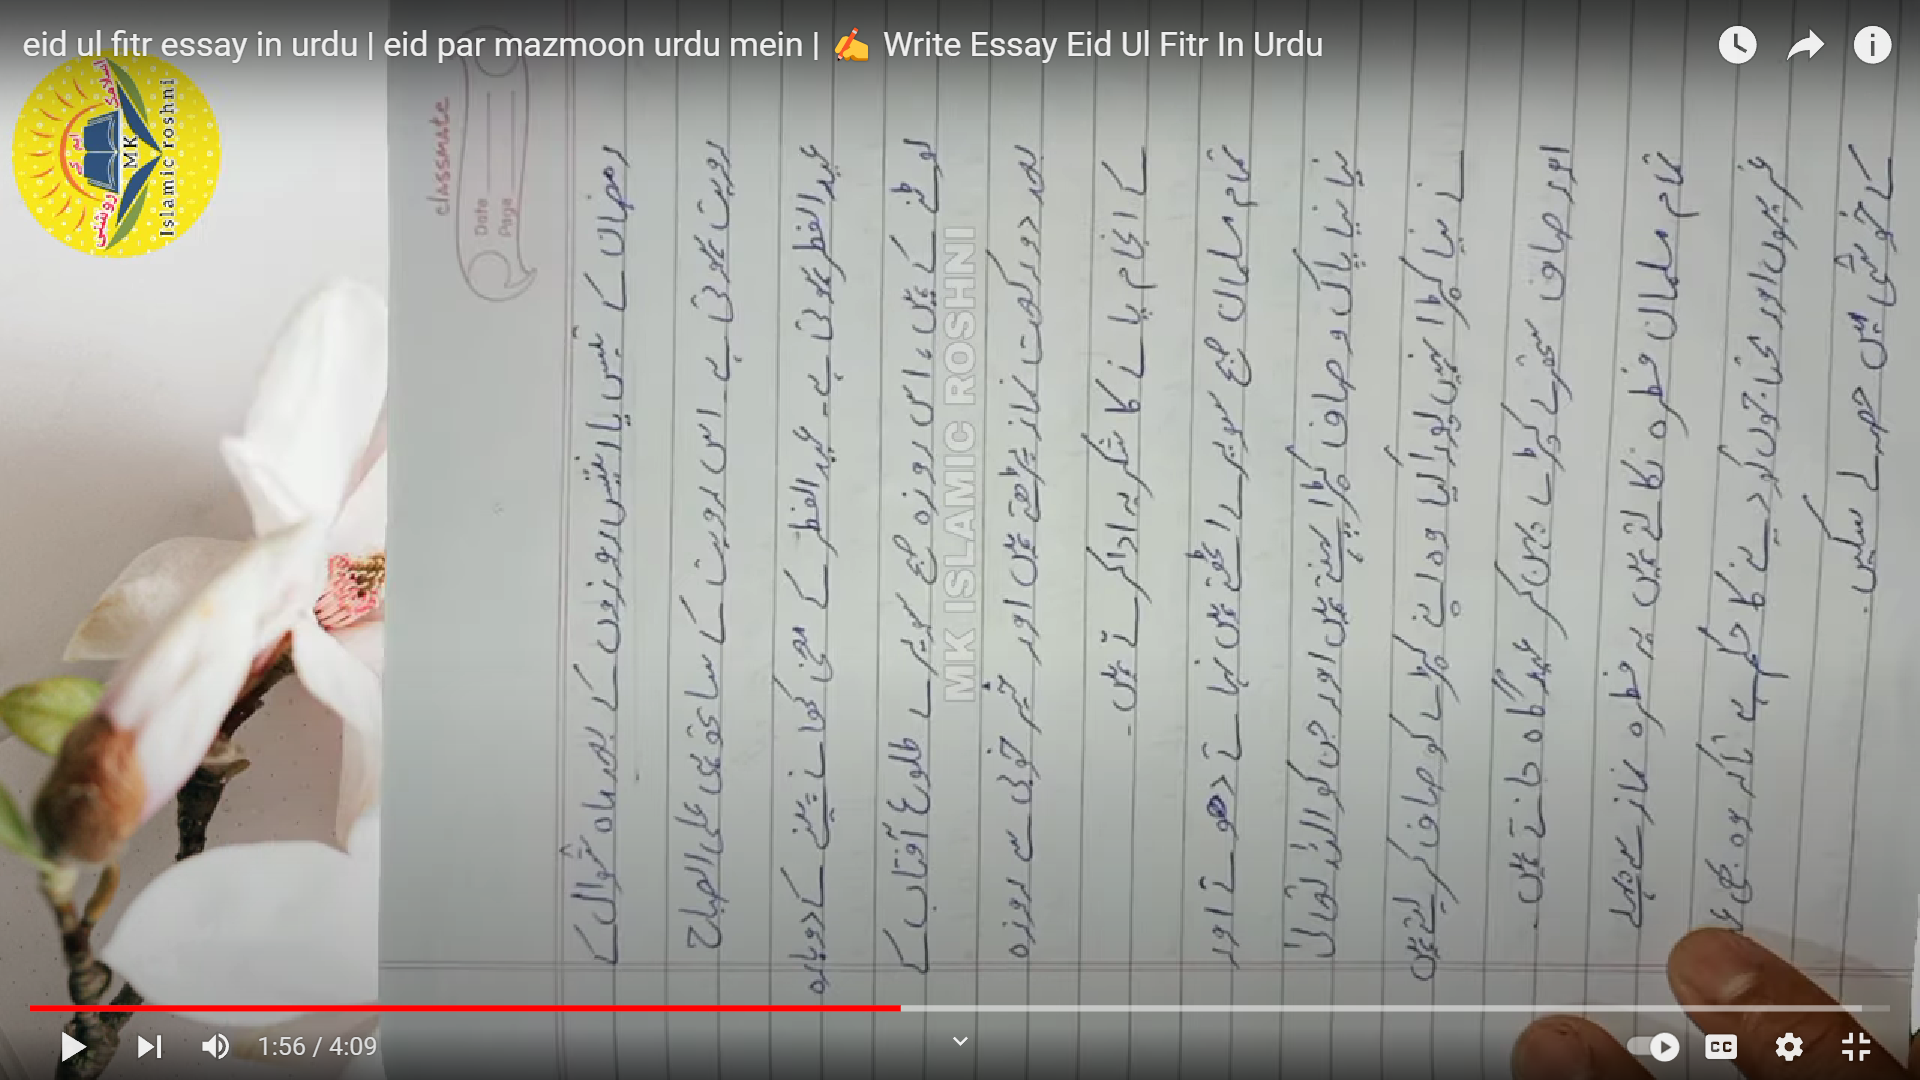 eid ul fitr essay in urdu | eid par mazmoon urdu mein | ✍ Write Essay Eid Ul Fitr In Urdu
اسلامک
ایم کے
روشنی
MK
Islamic roshni
classmate
Date
Page
رمضان کے تیس یا انتیس روزوں کے بعد ماہ شوال کے
رویت ہوتی ہے۔ اس رویت کے ساتھ ہی علی الصباح
عید الفطر ہوتی ہے۔ عید الفطر کے معنی کھانے پینے کے دوبارہ
لوٹنے کے ہیں، اس روزہ صبح سویرے طلوع آفتاب کے
بعد دو رکعت نماز پڑھتے ہیں اور خوبی سے روزہ
کے انجام پانے کا شکریہ ادا کرتے ہیں۔
تمام مسلمان صبح سویرے اٹھتے ہیں نہاتے دھوتے اور
نیا نیا پاک و صاف کپڑا پہنتے ہیں اور جن کو اللہ تعالیٰ
نے نیا کپڑا نہیں وہ اپنے کپڑے کو صاف کر لیتے ہیں
اور صاف ستھرے کپڑے پہن کر عیدگاہ جاتے ہیں۔
تمام مسلمان فطرہ نکالتے ہیں یہ فطرہ نماز سے پہلے
غریبوں اور محتاجوں کو دینے کا حکم ہے تاکہ وہ بھی
کے خوشی میں حصہ لے سکیں۔
MK ISLAMIC ROSHNI
1:56 / 4:09
CC